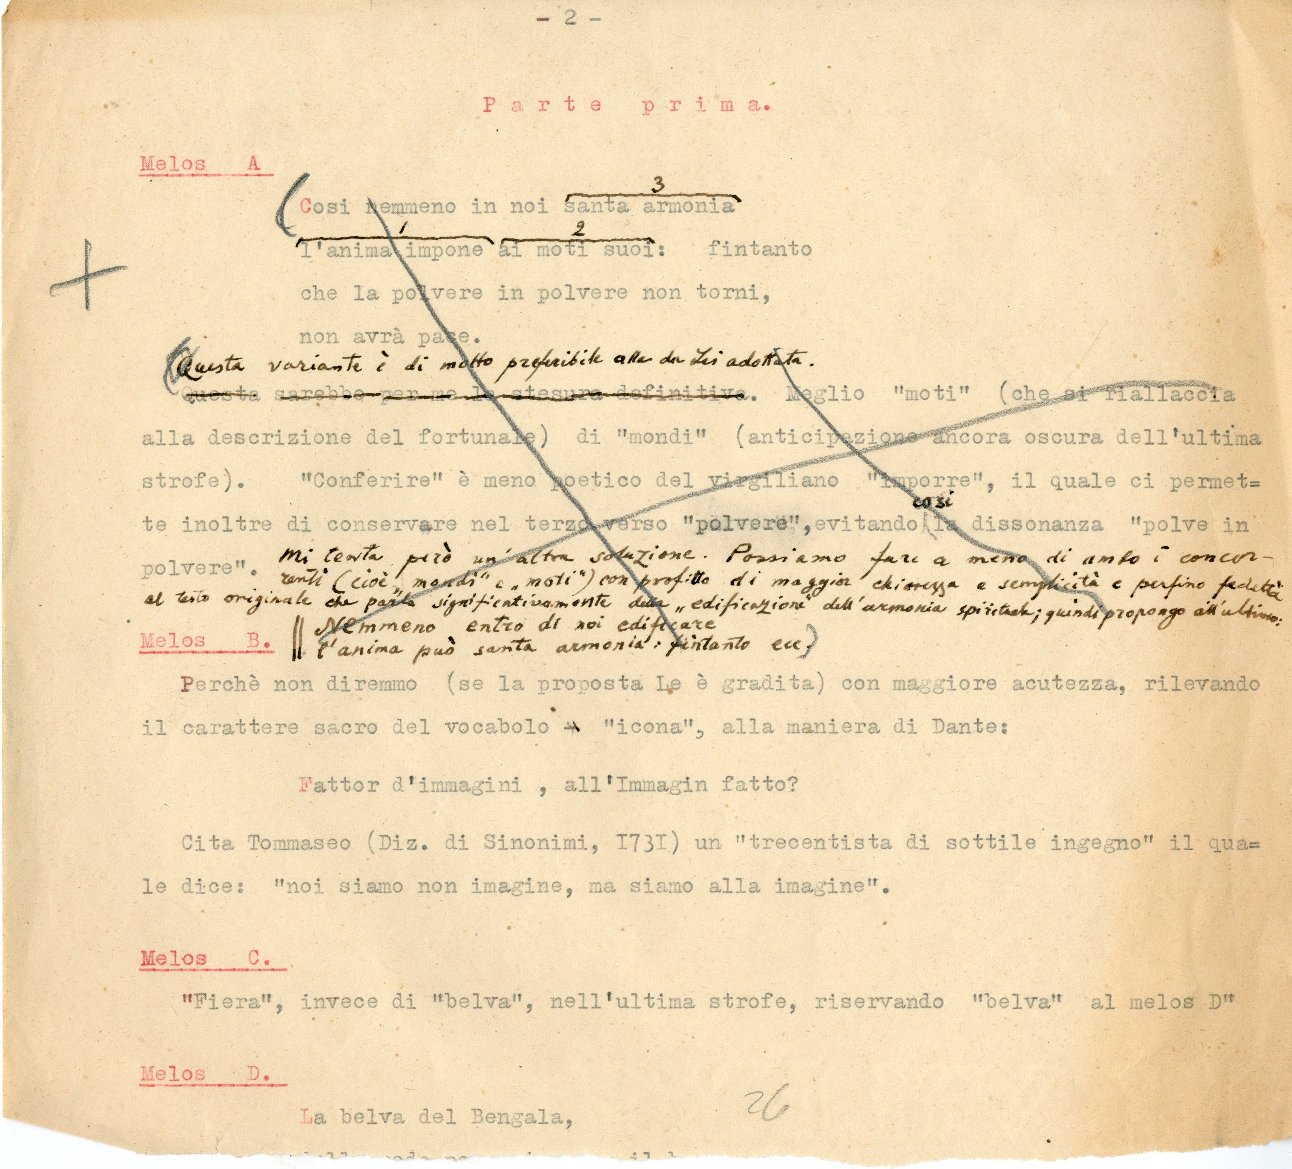 - 2 -
Parte prima.
Melos A
3
Cosi nemmeno in noi santa armonia
1 2
l'anima impone ai moti suoi: fintanto
che la polvere in polvere non torni,
non avrà pace.
Questa variante è di molto preferibile alla da Lei adottata.
questa sarebbe per me la stesura definitiva. Meglio "moti" (che si riallaccia
alla descrizione del fortunale) di "mondi" (anticipazione ancora oscura dell'ultima
strofe). "Conferire" è meno poetico del virgiliano "imporre", il quale ci permet=
così
te inoltre di conservare nel terzo verso "polvere", evitando la dissonanza "polve in
polvere". Mi tenta però un'altra soluzione. Possiamo fare a meno di ambo i concor-
renti (cioè „mondi" e „moti") con profitto di maggior chiarezza e semplicità e perfino fedeltà
al testo originale che parla significativamente della „edificazione" dell'armonia spirituale; quindi propongo all'ultimo:
Nemmeno entro di noi edificare
Melos B.
l'anima può santa armonia: fintanto ecc.)
Perchè non diremmo (se la proposta Le è gradita) con maggiore acutezza, rilevando
il carattere sacro del vocabolo "icona", alla maniera di Dante:
Fattor d'immagini , all'Immagin fatto?
Cita Tommaseo (Diz. di Sinonimi, I73I) un "trecentista di sottile ingegno" il qua=
le dice: "noi siamo non imagine, ma siamo alla imagine".
Melos C.
"Fiera", invece di "belva", nell'ultima strofe, riservando "belva" al melos D"
Melos D.
La belva del Bengala,
26